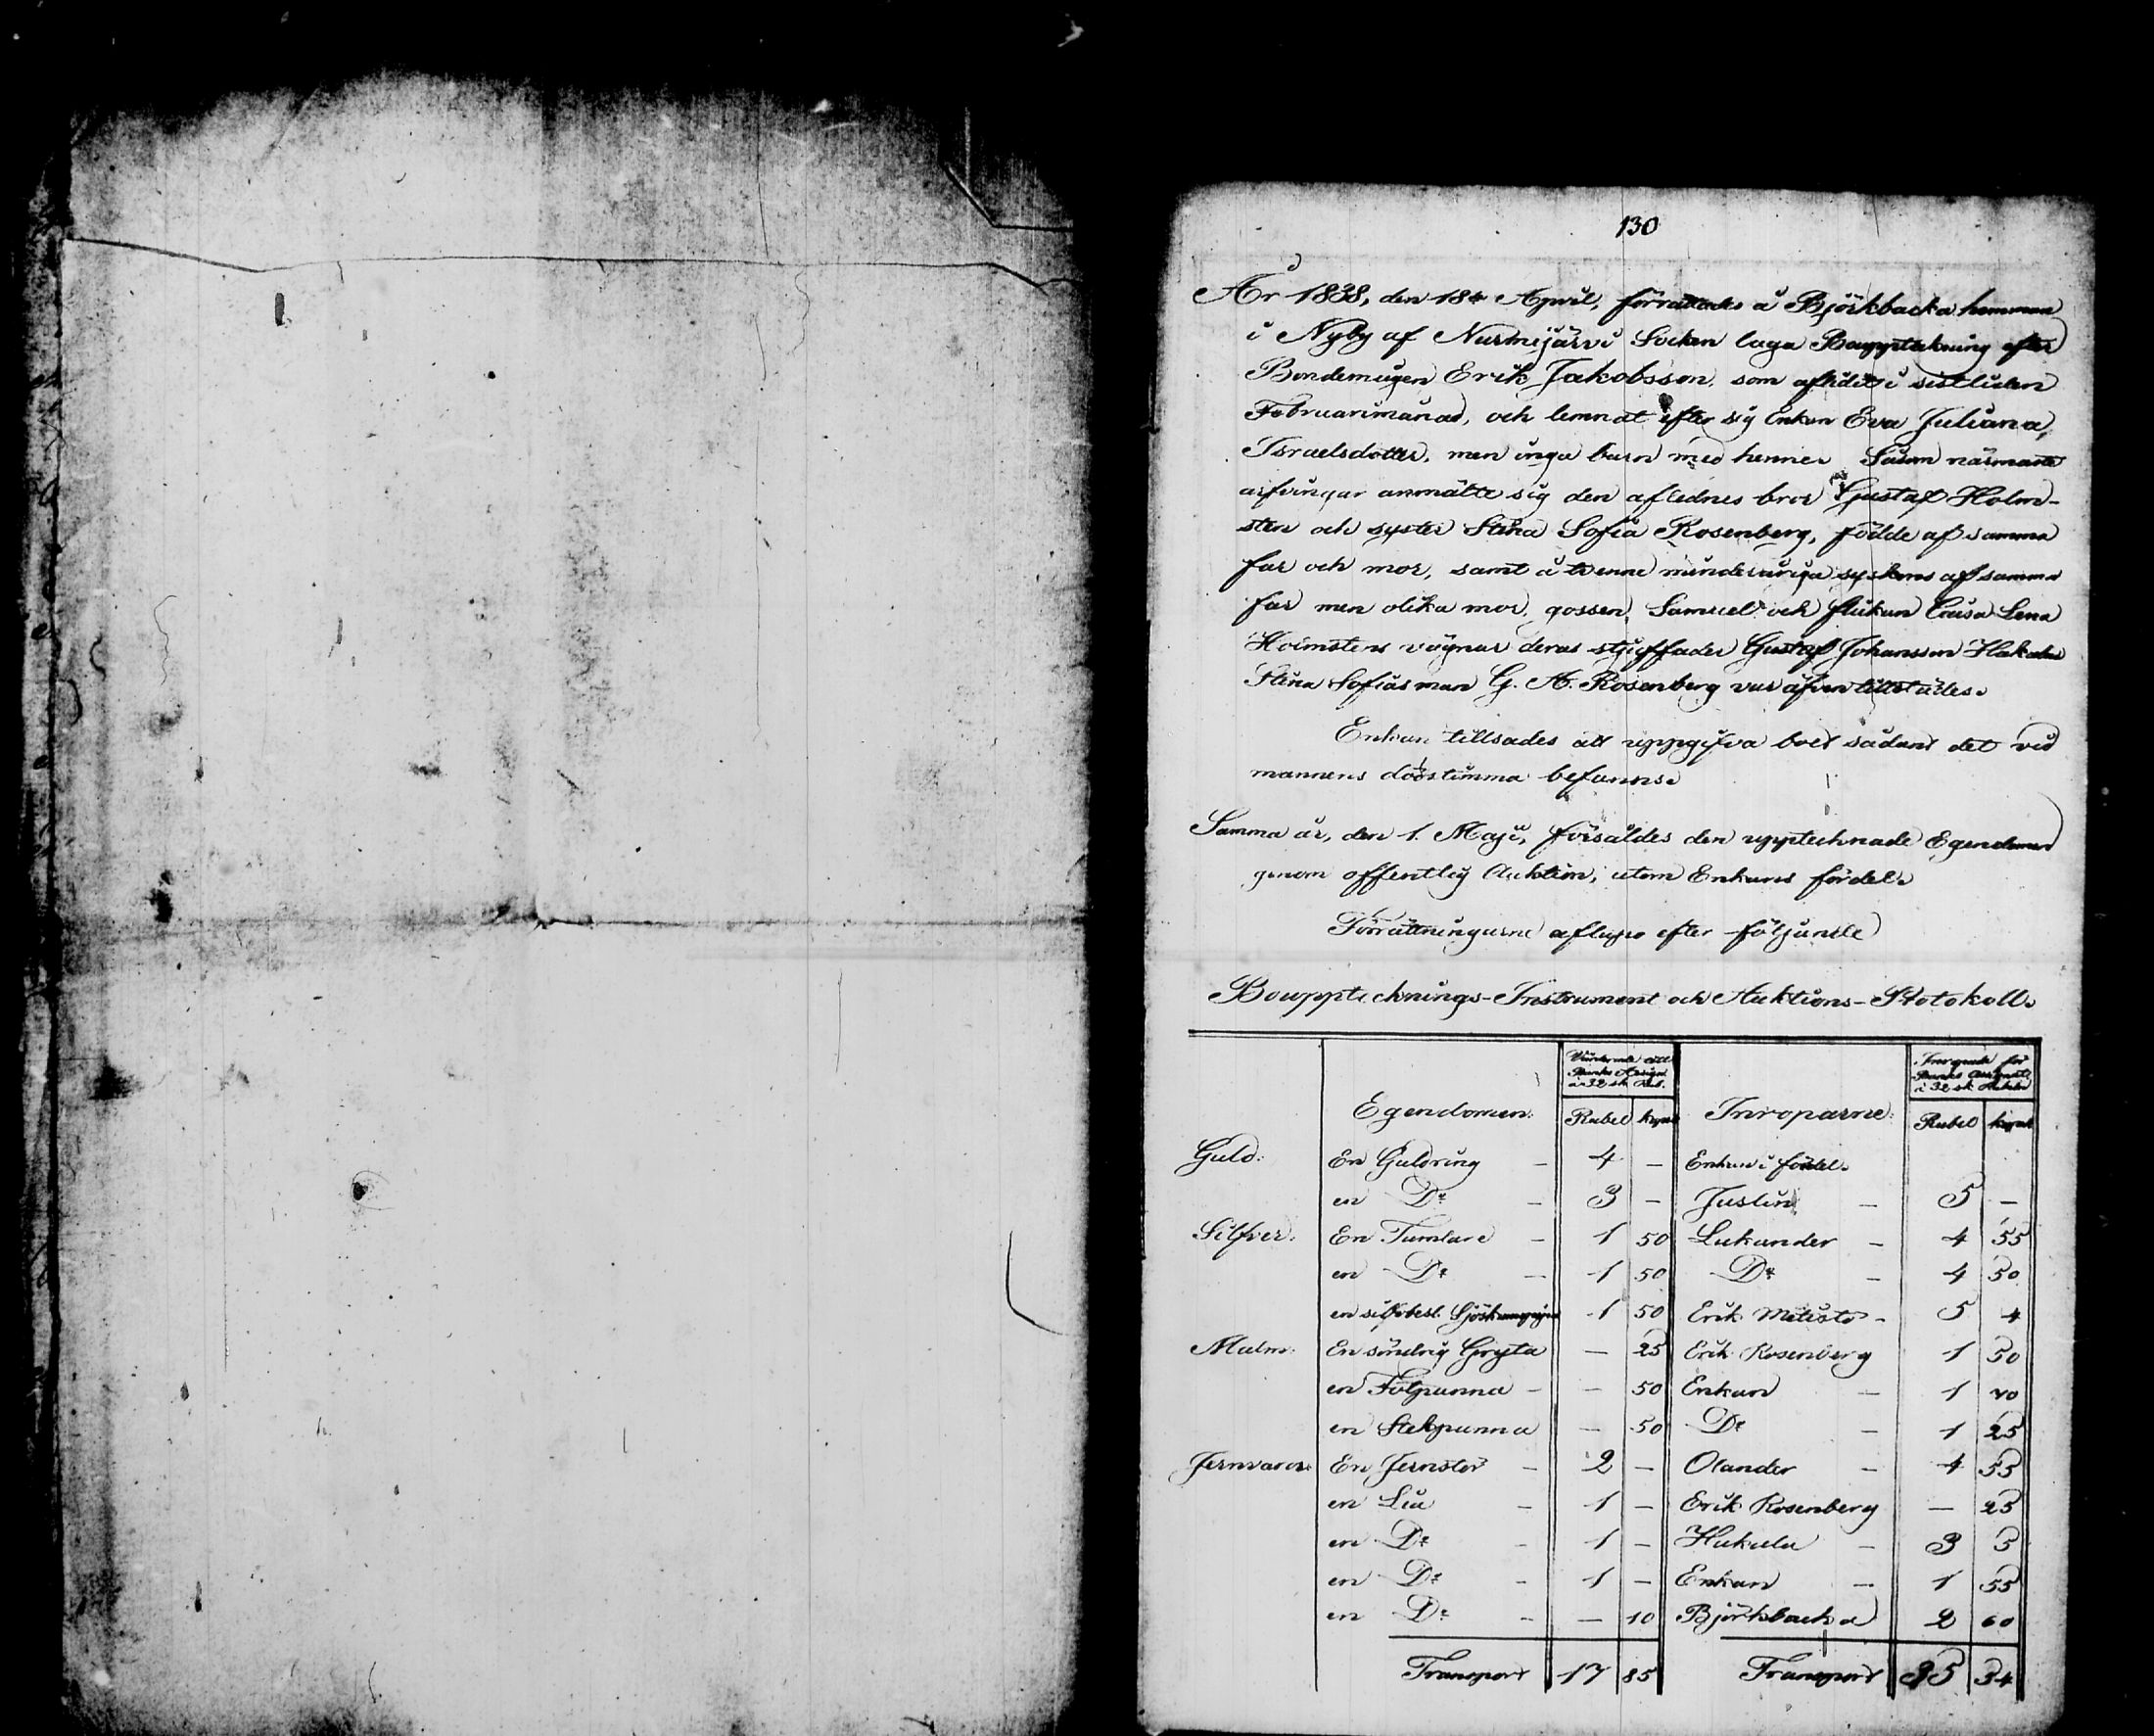 130
År 1838, den 18de April, förrättades å Björkbacka hemman
i Nyby af Nurmijärvi Socken laga Bouppteckning efter
Bondemågen Erik Jakobsson, som aflidit i sistliden
Februarimånad, och lemnat efter sig Enkan Eva Juliana
Israelsdotter, men inga barn med henne. Såsom närmaste
arfvingar anmälte sig den aflednes bror Gustaf Holm-
sten och syster Stina Sofia Rosenberg, födde af samma
far och mor, samt å tvenne minderåriga syskons af samma
far men olika mor, gossen Samuel och flickan Caisa Lena
Holmstens vägnar deras styffader Gustaf Johansson Hakala
Stina Sofias man G. A. Rosenberg var äfven tillstädes.
Enkan tillsades att uppgifva boet sådant det vid
mannens dödstimma befanns.
Samma år, den 1. Maji, försåldes den upptecknade Egendomen
genom offentlig Auktion, utom Enkans fördel.
Förrättningarne aflupo efter följande
Bouppteknings-Instrument och Auktions-Protokoll.
Värderade till Inropade för
Banko Assign. Banco Assignat.
à 32 sk. Rub. à 32 sk Rubeln
Egendomen. Rubel kopek Inroparne. Rubel kopek
Guld. En Guldring – 4 – Enkans fördel.
en Do – 3 – Justin – 5 –
Silfver. En Tumlare – 1 50 Lukander – 4 55
en Do – 1 50 Do – 4 50
en silfvbesl. Sjöskumspipa 1 50 Erik Mitisto – 5 4
Malm. En söndrig Gryta – 25 Erik Rosenberg 1 50
en Fotpanna – – 50 Enkan – 1 70
en Stekpanna – 50 Do – 1 25
Jernvaror. En Jernstör – 2 – Olander – 4 55
en Lia – 1 – Erik Rosenberg – 25
en Do – 1 – Hakala – 3 5
en Do – 1 – Enkan – 1 55
en Do – – 10 Björkbacka 2 60
Transport 17 85 Transport 35 34